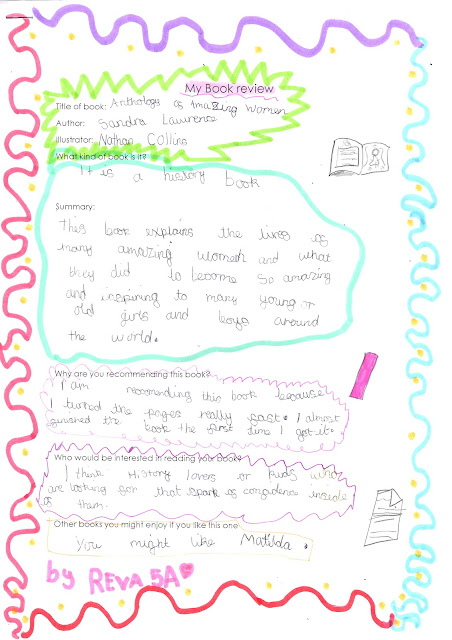 My Book review
Title of book: Anthology of Amazing Women
Author: Sandra Lawrence
Illustrator: Nathan Collins
What kind of book is it?
It is a history book
Summary:
This book explains the lives of
many amazing women and what
they did to become so amazing
and inspiring to many young or
old girls and boys around
the world.
Why are you recommending this book?
I am recomending this book because
I turned the pages really fast. I almost
finished the book the first time I got it.
Who would be interested in reading your book?
I think History lovers or kids who
are looking for that spark of confidence inside
of them.
Other books you might enjoy if you like this one
You might like Matilda.
by REVA 5A